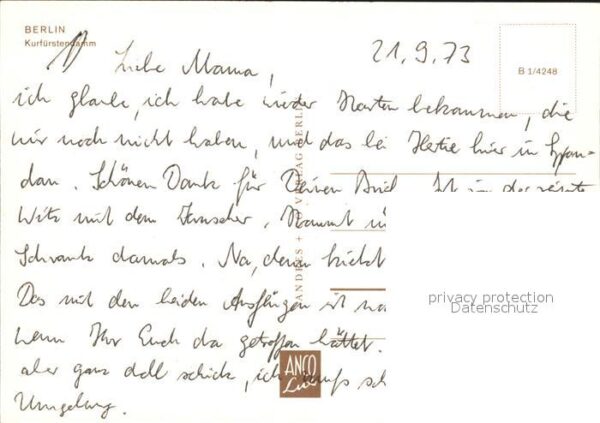 BERLIN
Kurfürstendamm
21.9.73
B 1/4248
Liebe Mama,
ich glaube, ich habe wieder Karten bekommen, die
wir noch nicht haben, und das bei Hetie hier in Span-
dau. Schönen Dank für Deinen Brief. Ist ja der reinste
Witz mit dem Fernseher. Kommt
Schrank damals. Na, denn
Das mit den beiden Ausflügen ist
wenn Ihr Euch da getroffen hättet.
aber ganz doll schick, ich muß
Umgebung.
ANDRES + CO VERLAG BERLIN
ANCO
Lux
privacy protection
Datenschutz